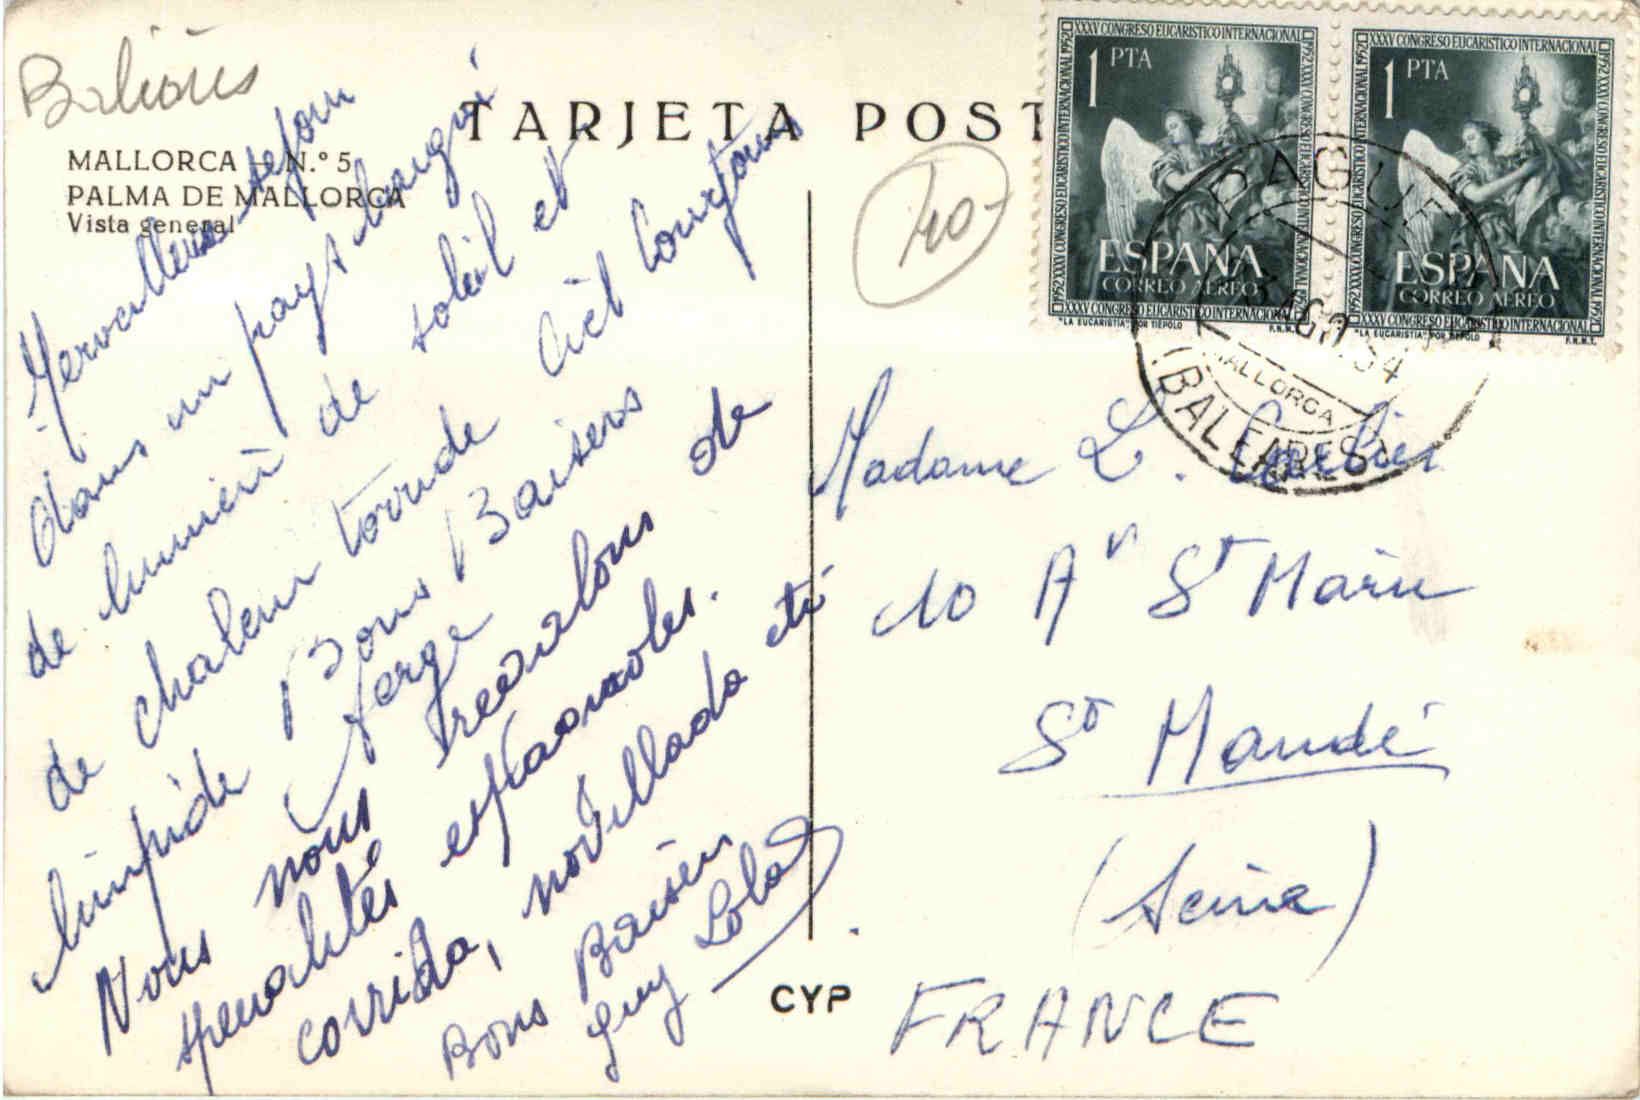 TARJETA POST
MALLORCA - N.º 5
PALMA DE MALLORCA
Vista general
Merveilleux sejour
dans un pays
de lumière de soleil et
de chaleur torride
limpide Bons Baisers
Serge
Nous nous régalons de
spécialités espagnoles.
corrida, novillada etc
Bons Baisers
Guy Lola
CYP
XXXV CONGRESO EUCARISTICO INTERNACIONAL 1952
1 PTA
ESPAÑA
CORREO AEREO
"LA EUCARISTIA", POR TIEPOLO
F.N.M.T.
XXXV CONGRESO EUCARISTICO INTERNACIONAL 1952
1 PTA
ESPAÑA
CORREO AEREO
"LA EUCARISTIA", POR TIEPOLO
F.N.M.T.
PAGUERA
AGO. 54
MALLORCA
(BALEARES)
Madame L.
10 Av St Marie
St Mandé
(Seine)
FRANCE